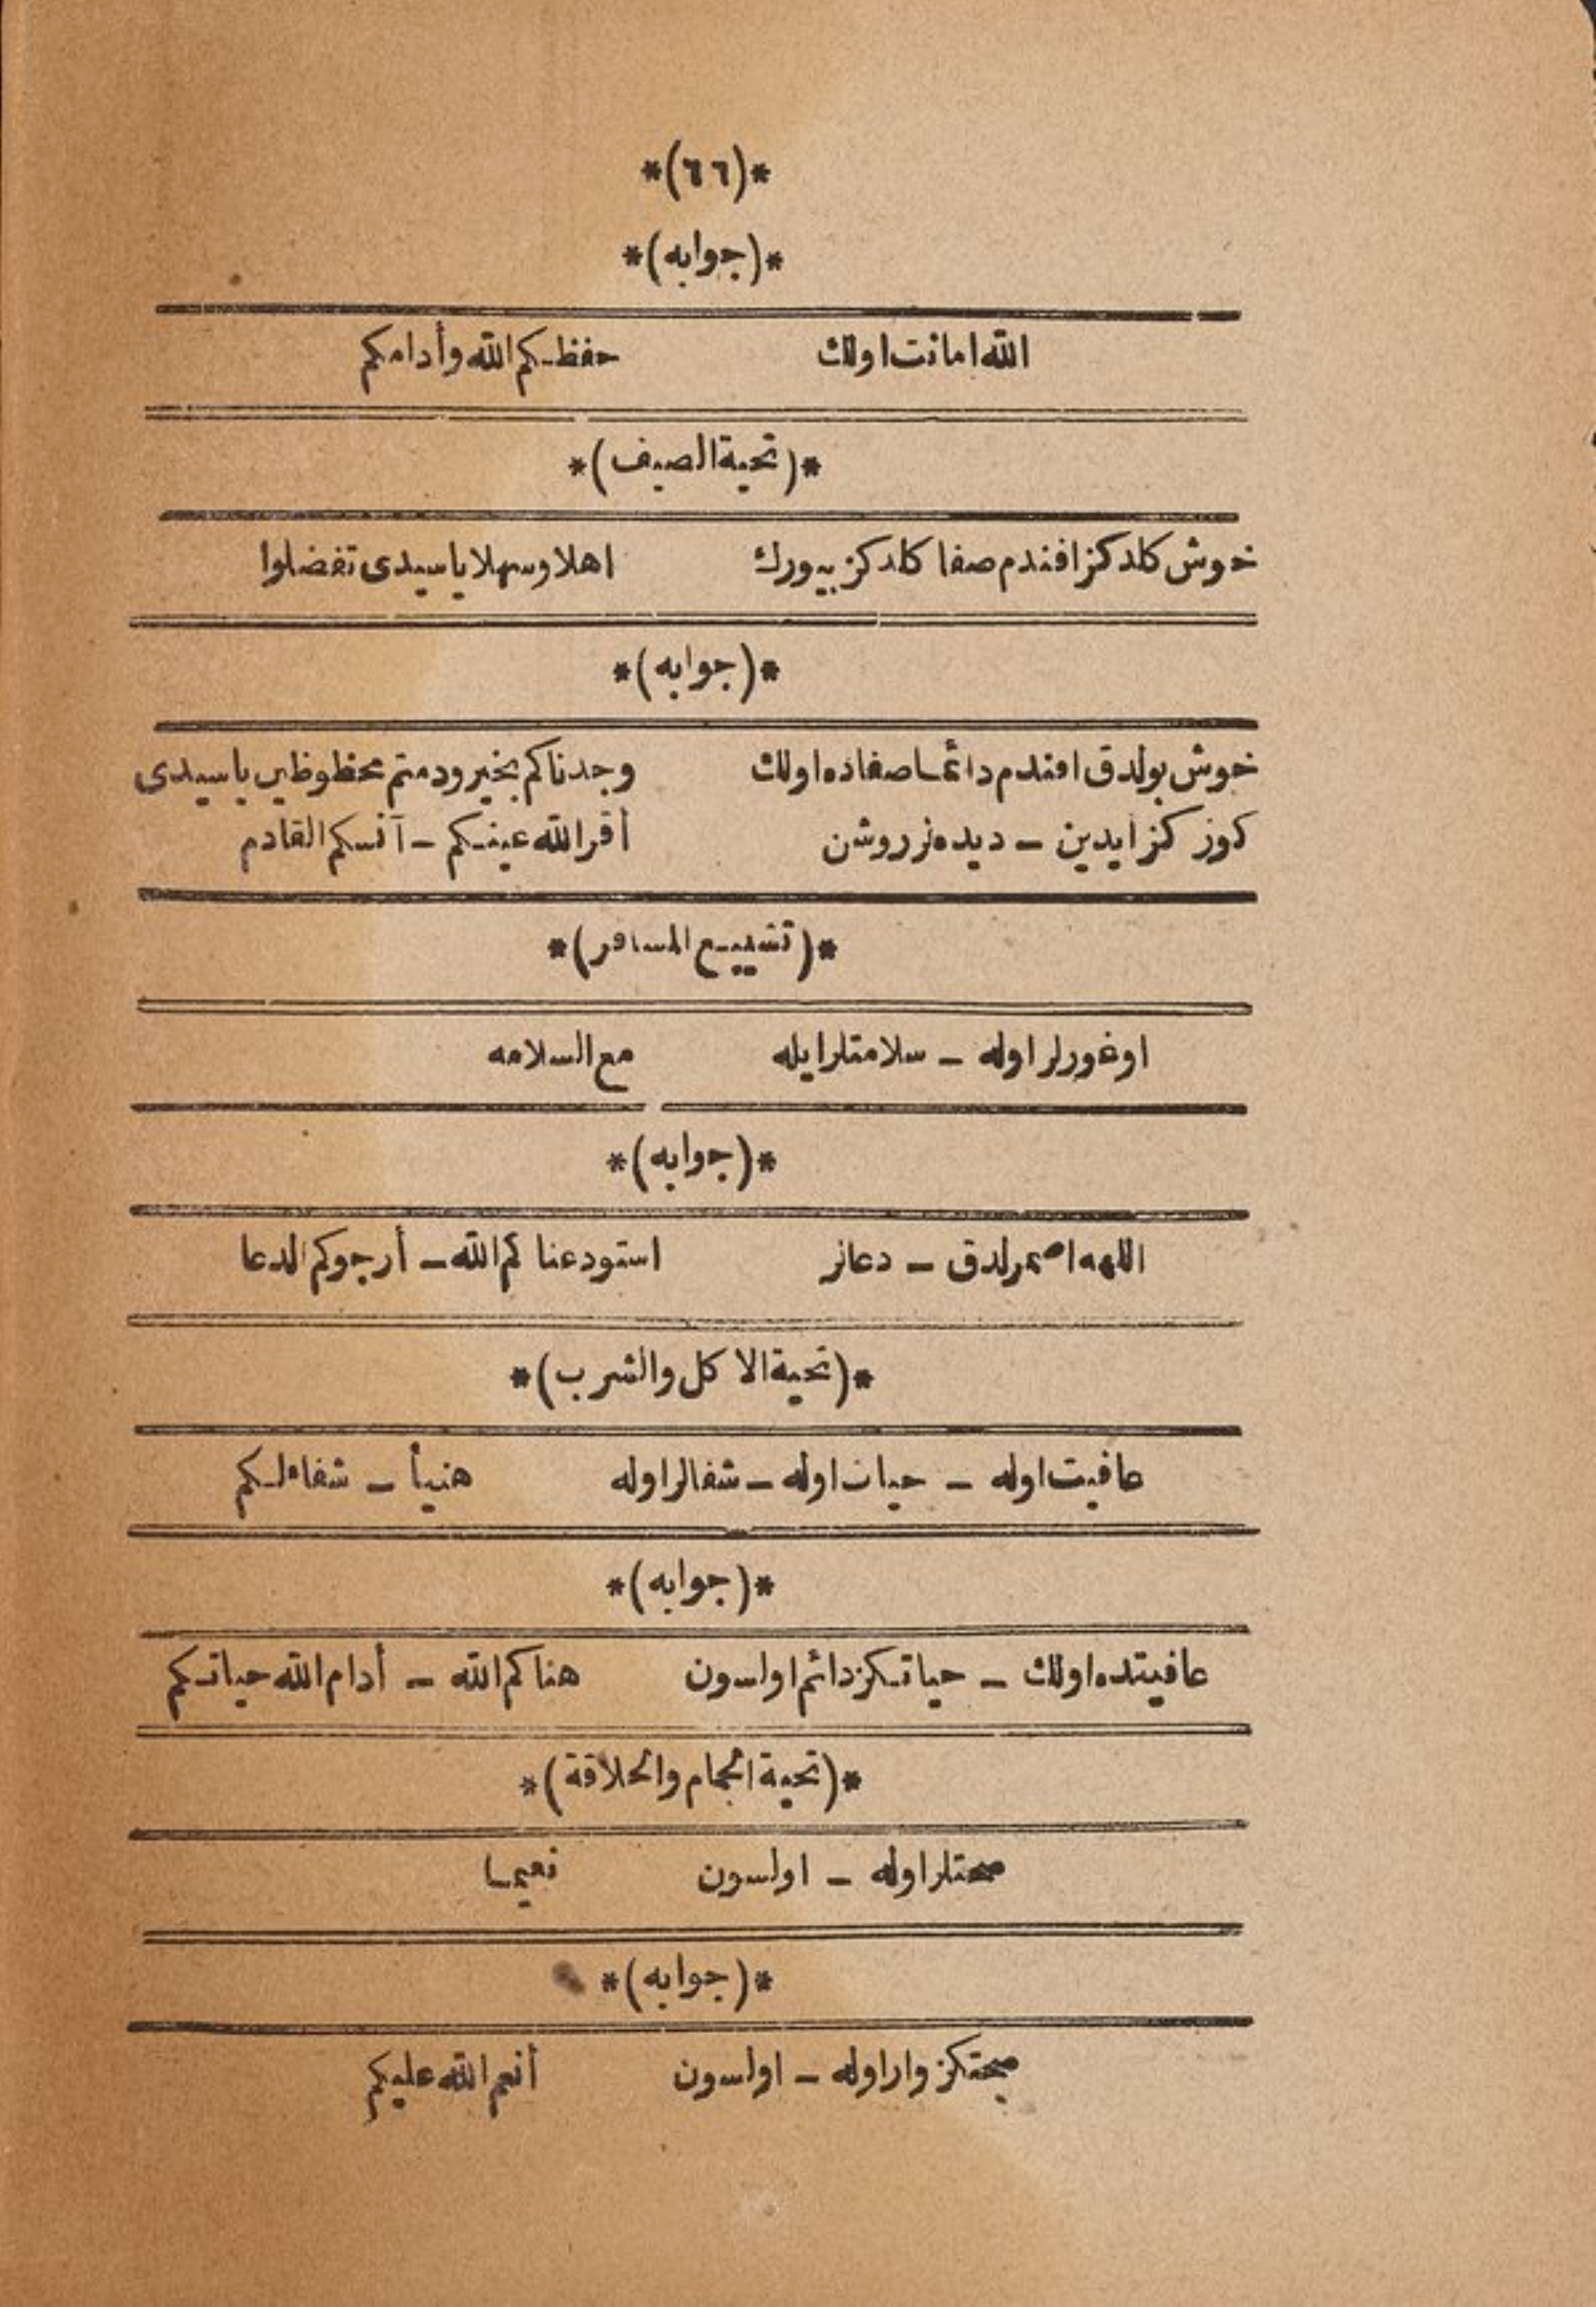 *(٦٦)*
*(جوابه)*
الله امانت اولك حفظكم الله وأدامكم
*(تحية الضيف)*
خوش كلدكز افندم صفا كلدكز بيورك اهلا وسهلا ياسيدى تفضلوا
*(جوابه)*
خوش بولدق افندم دائما صفاده اولك وجدناكم بخير ودمتم محظوظين ياسيدى
كوزكز ايدين – ديده‌لر روشن أقر الله عينكم – آنسكم القادم
*(تشييع المسافر)*
اوغورلر اوله – سلامتلر ايله مع السلامه
*(جوابه)*
اللهه اصمرلدق – دعالر استودعناكم الله – أرجوكم الدعا
*(تحية الاكل والشرب)*
عافيت اوله – حيات اوله – شفالر اوله هنيأ – شفاء لكم
*(جوابه)*
عافيتده اولك – حياتكز دائم اولسون هناكم الله – أدام الله حياتكم
*(تحية الحمام والحلاقة)*
صحتلر اوله – اولسون نعيما
*(جوابه)*
صحتكز وار اوله – اولسون أنعم الله عليكم